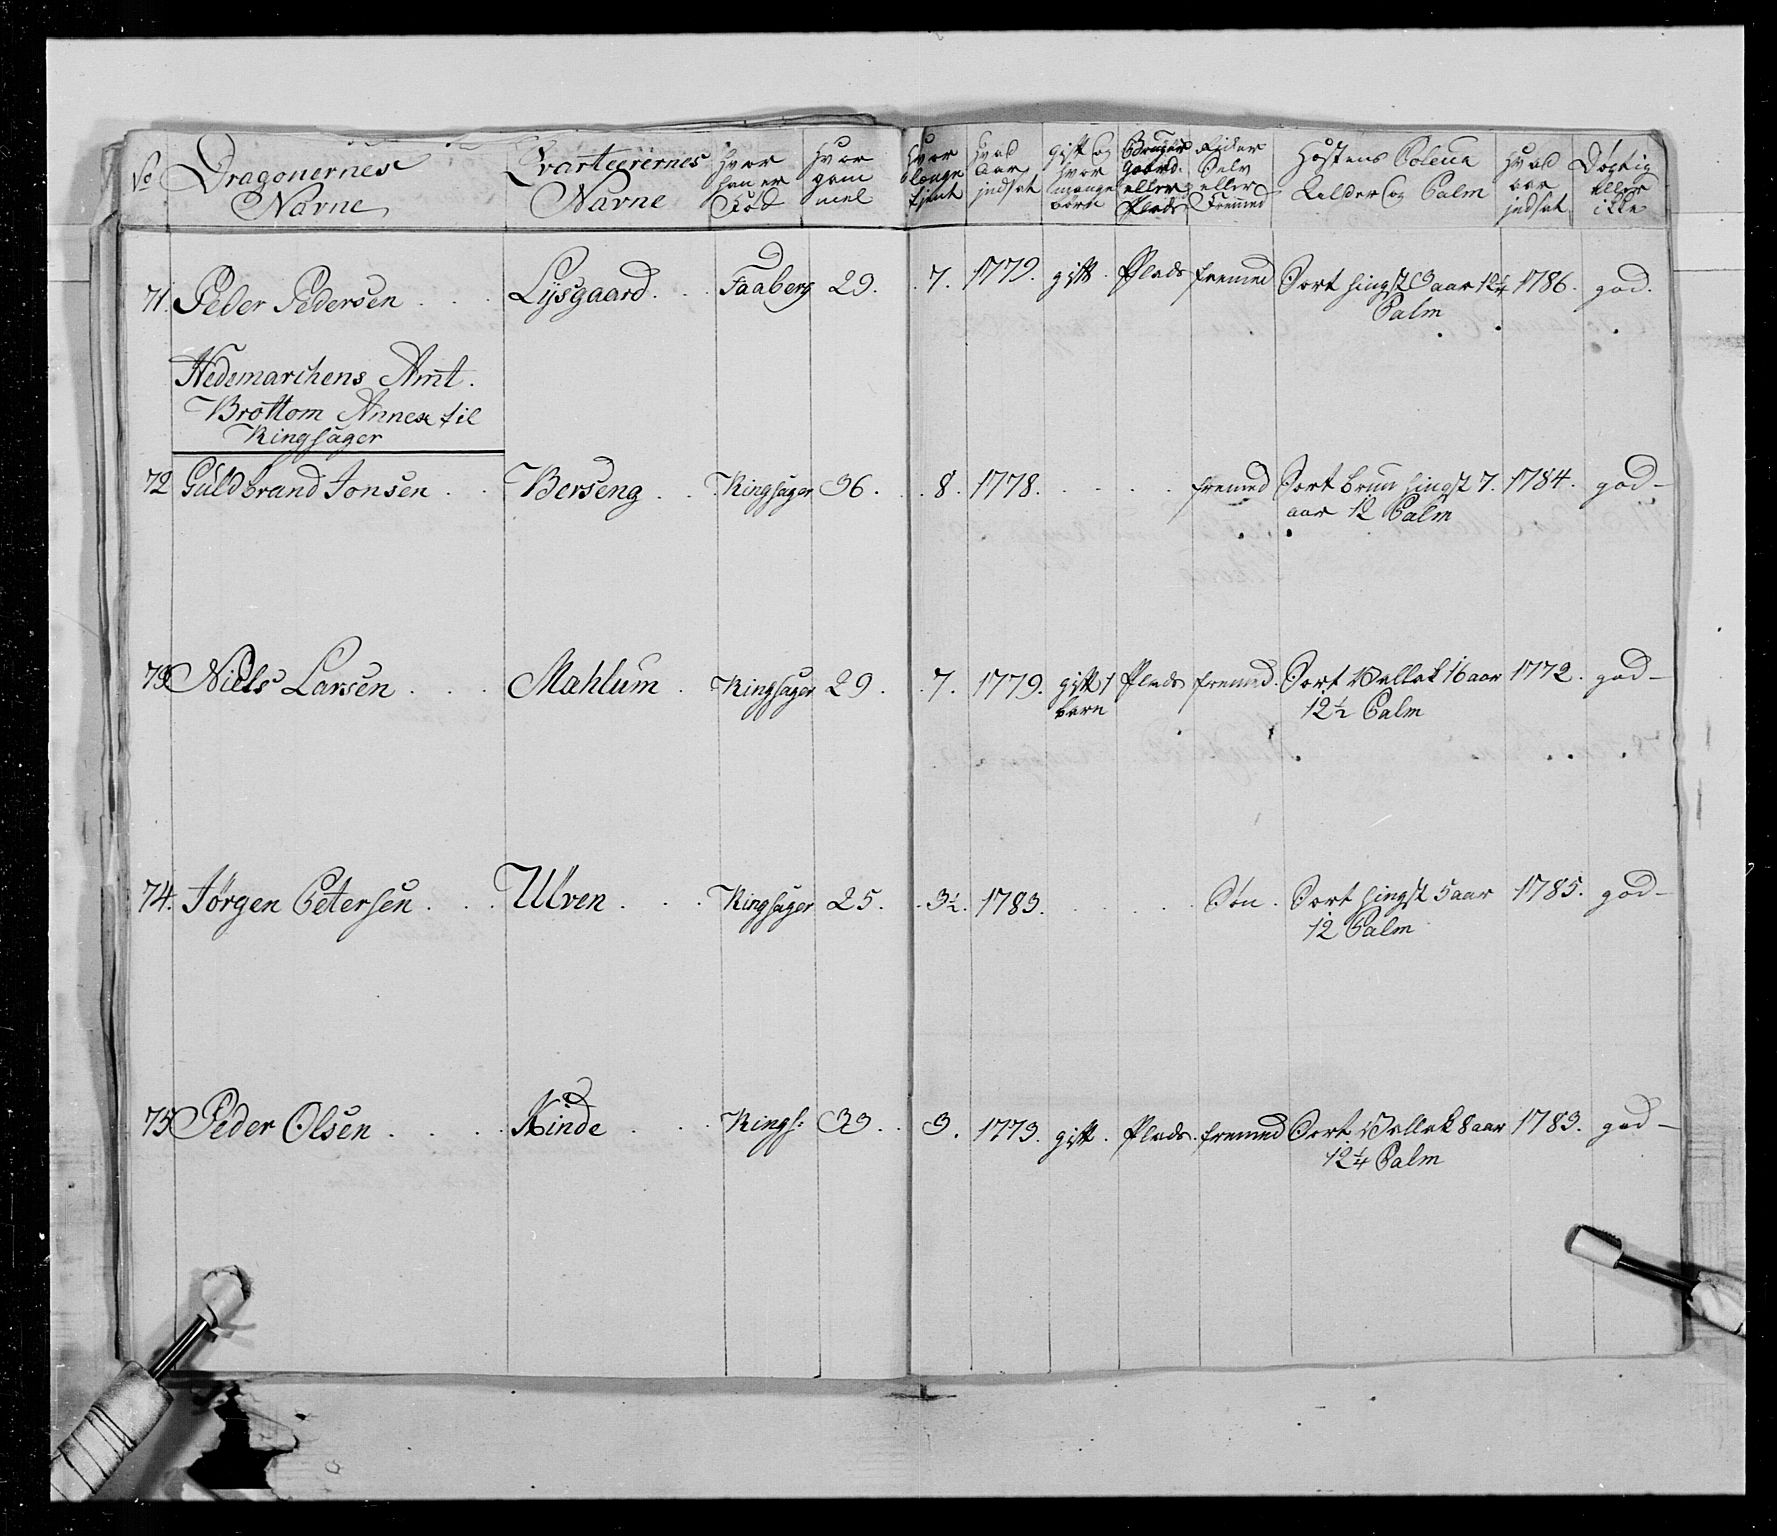 No Dragonernes Navne Qvarteerernes Navne Hvor han er Fød Hvor gam mel Hvor længe tjent Hvad Aar indsat gift og hvor mange børn Bruger Gaard eller Plads Rider Selv eller Fremmed Hæstens Couleur Alder og Palm Hvad aar indsat Dygtig eller ikke
71. Peder Pedersen . . . Lysgaard . . Faaberg 29. . 7. 1779. gift . Plads fremed Sort hingst 3 aar 12¼ 1786. god.
Palm
Hedemarchens Amt.
Brøttom Annex til
Ringsager
72 Guldbrand Jonsen . . Berseng . . Ringsager 36 . . 8. 1778. . . . . fremed Sort brun hingst 7. 1784. god-
aar 12 Palm
73 Niels Larsen . . . Mahlum . Ringsager 29 . . 7. 1779. gift 1 Plads fremed. Sort Vallak 16 aar 1772. god-
barn 12½ Palm
74. Jørgen Petersen . . . Ulven . . . Ringsager 25. . 3½. 1783. . . . Søn . Sort hingst 5 aar 1785. god-
12 Palm
75 Peder Olsen . . . . Kinde . . . Rings: 33 . . 3. 1773. gift . Plads. fremed Sort Vallak 8 aar 1783. god-
12¼ Palm